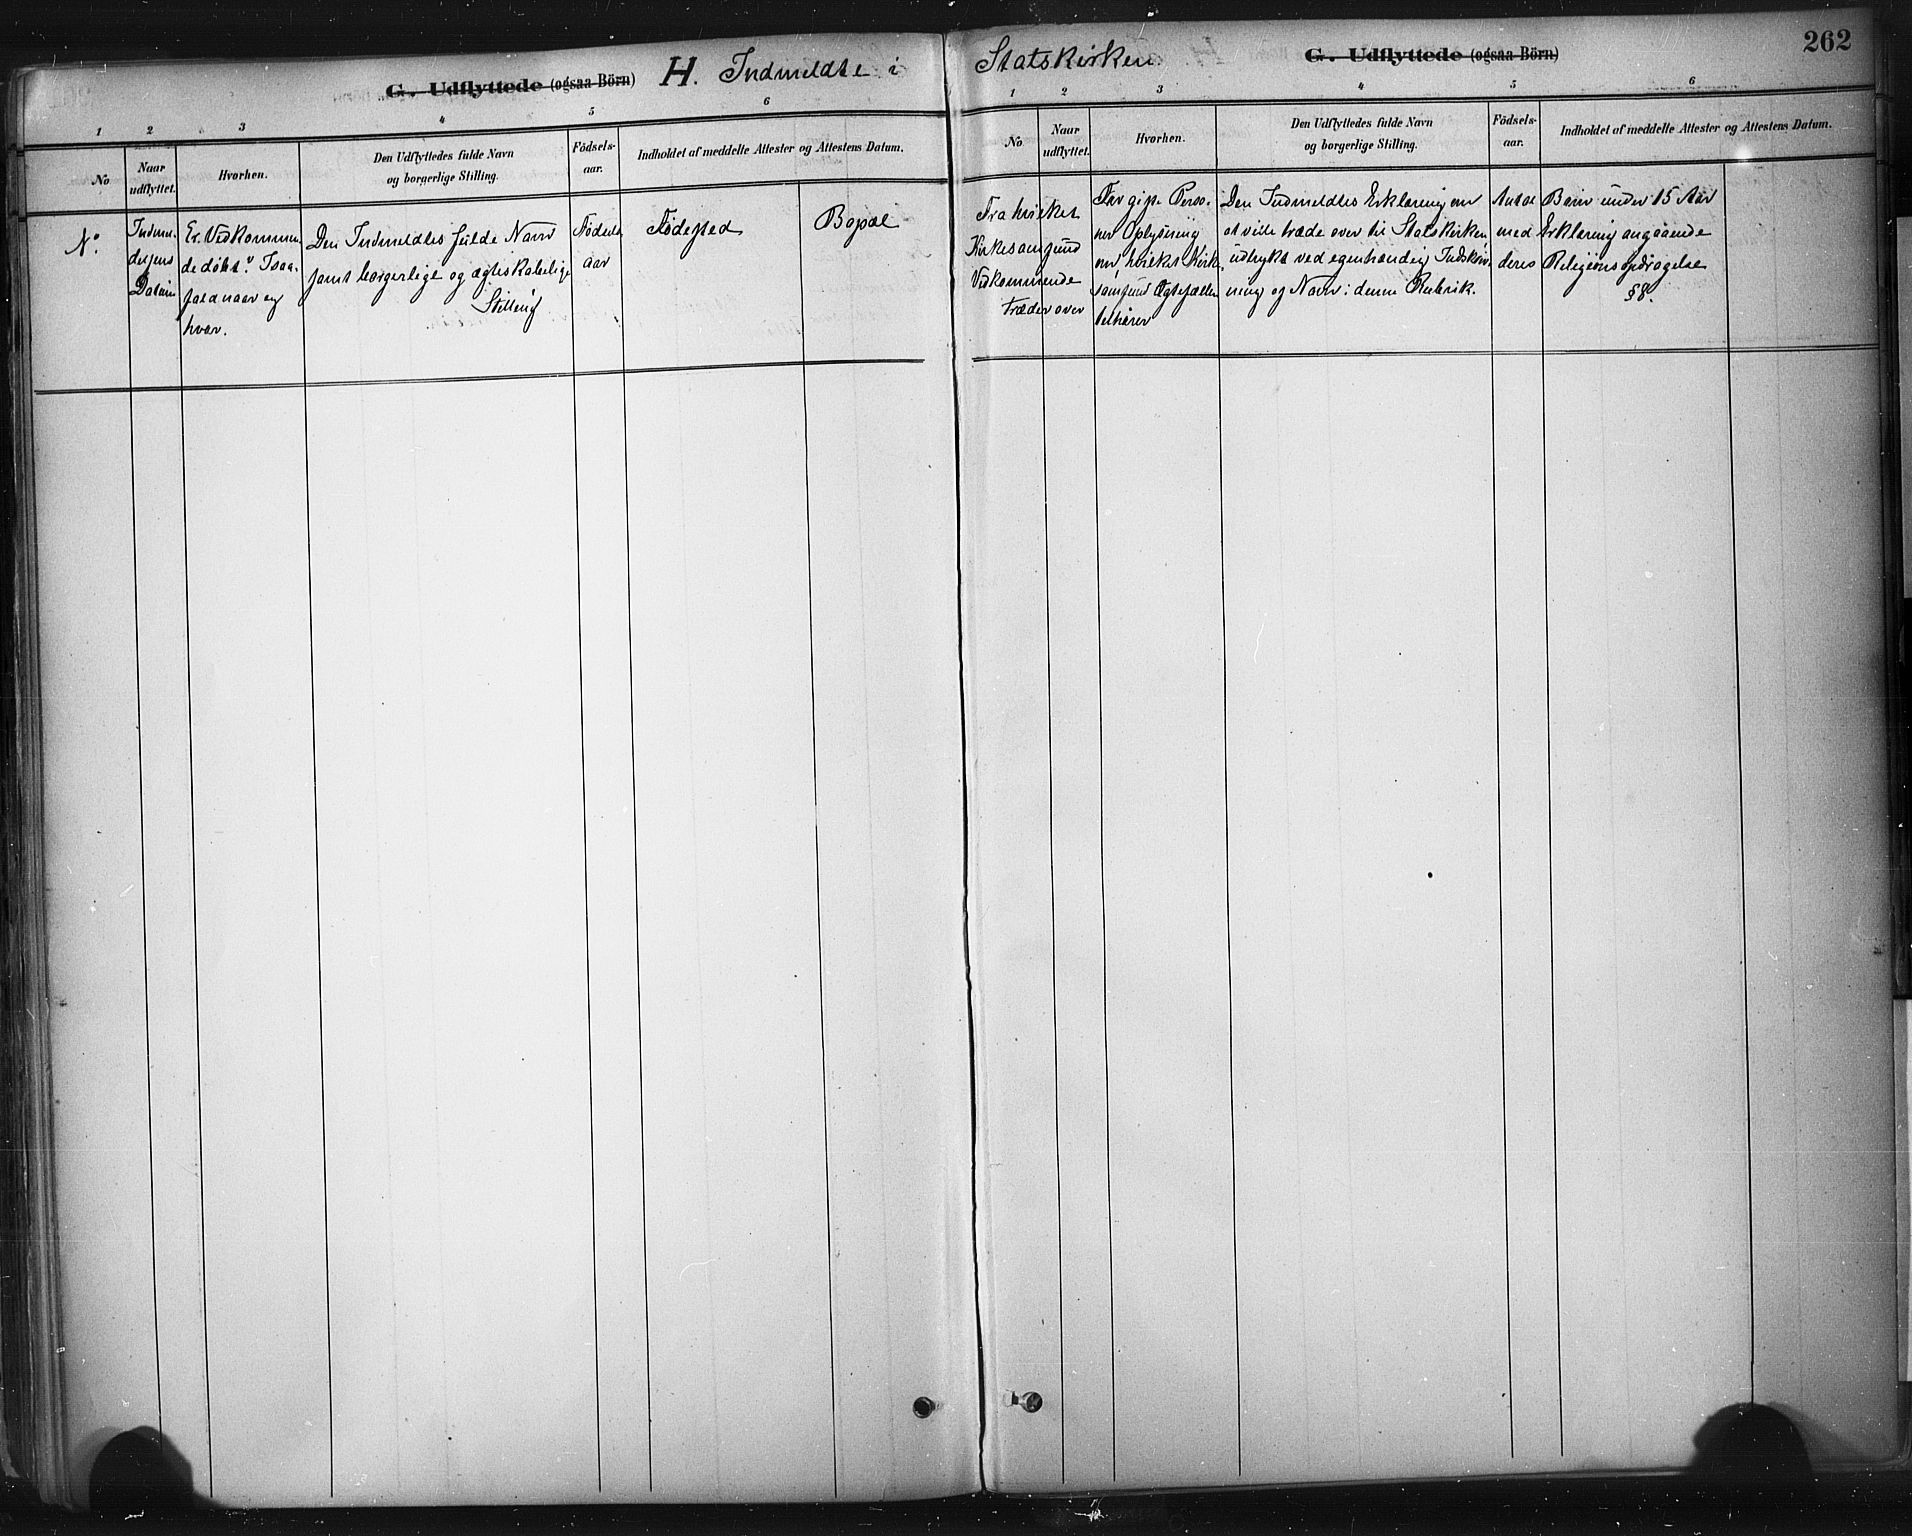 G. Udflyttede (ogsaa Börn) H. Indmeldte i
1 2 3 4 5 6
No
Naar
udflyttet.
Hvorhen.
Den Udflyttedes fulde Navn
og borgerlige Stilling.
Födsels-
aar.
Indholdet af meddelte Attester og Attestens Datum.
No
Indmel-
delsens
Datum
Er Vedkommen-
de døbt? Isaa-
fald naar og
hvor.
Den Indmeldtes fulde Navn
samt borgerlige og ægteskabelige
Stilling
Fødsels
aar
Fødested
Bopæl
262
Statskirken. G. Udflyttede (ogsaa Börn)
1 2 3 4 5 6
No
Naar
udflyttet.
Hvorhen.
Den Udflyttedes fulde Navn
og borgerlige Stilling.
Födsels-
aar.
Indholdet af meddelte Attester og Attestens Datum.
Fra hvilket
Kirkesamfund
Vedkommende
træder over
For gifte Perso-
ner Oplysning
om, hvilket Kirke
samfund Ægtefællen
tilhører
Den Indmeldtes Erklæring om
at ville træde over til Statskirken,
udtrykt ved egenhændig Indskriv-
ning og Navn i denne Rubrik.
Antal Børn under 15 Aar
med Erklæring angaaende
deres Religionsopdragelse
§8.